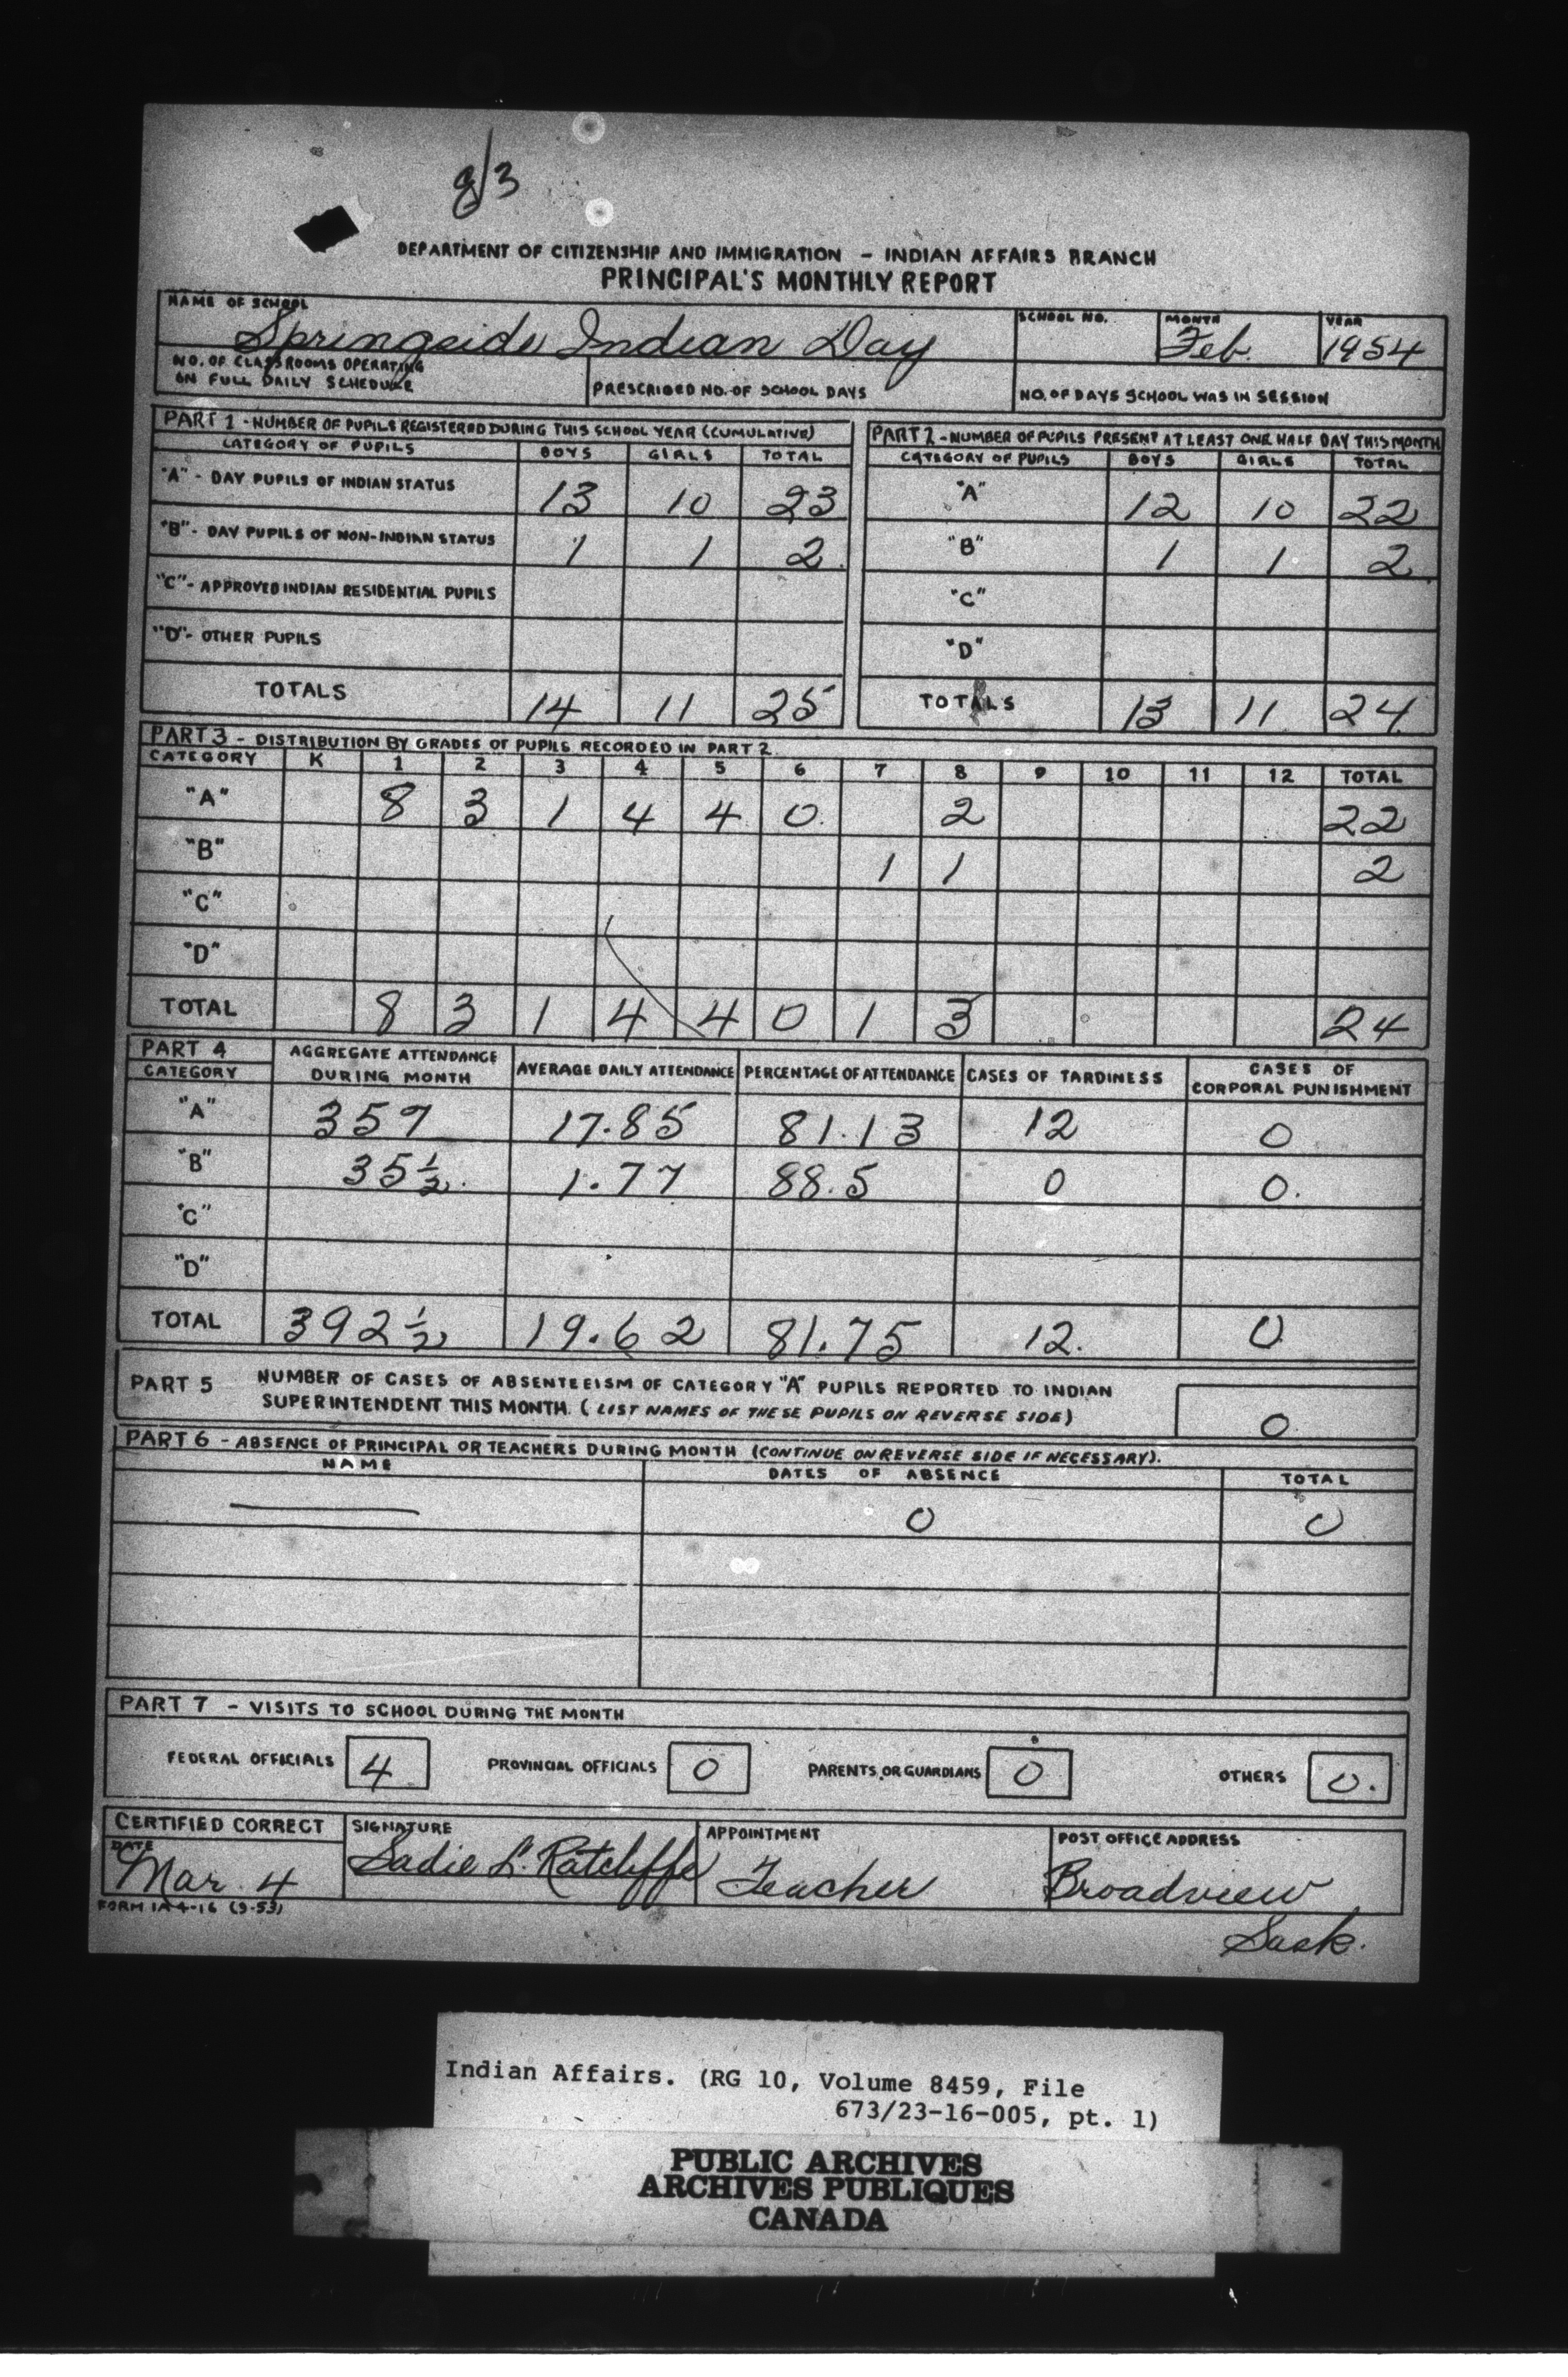 8/3
DEPARTMENT OF CITIZENSHIP AND IMMIGRATION – INDIAN AFFAIRS BRANCH
PRINCIPAL'S MONTHLY REPORT
NAME OF SCHOOL SCHOOL NO. MONTH YEAR
Springside Indian Day Feb. 1954
NO. OF CLASSROOMS OPERATING
ON FULL DAILY SCHEDULE PRESCRIBED NO. OF SCHOOL DAYS NO. OF DAYS SCHOOL WAS IN SESSION
PART 1 - NUMBER OF PUPILS REGISTERED DURING THIS SCHOOL YEAR (CUMULATIVE)
CATEGORY OF PUPILS BOYS GIRLS TOTAL
"A" - DAY PUPILS OF INDIAN STATUS 13 10 23
"B" - DAY PUPILS OF NON-INDIAN STATUS 1 1 2
"C" - APPROVED INDIAN RESIDENTIAL PUPILS
"D" - OTHER PUPILS
TOTALS 14 11 25
PART 2 - NUMBER OF PUPILS PRESENT AT LEAST ONE HALF DAY THIS MONTH
CATEGORY OF PUPILS BOYS GIRLS TOTAL
"A" 12 10 22
"B" 1 1 2
"C"
"D"
TOTALS 13 11 24
PART 3 - DISTRIBUTION BY GRADES OF PUPILS RECORDED IN PART 2
CATEGORY K 1 2 3 4 5 6 7 8 9 10 11 12 TOTAL
"A" 8 3 1 4 4 0 2 22
"B" 1 1 2
"C"
"D"
TOTAL 8 3 1 4 4 0 1 3 24
PART 4
CATEGORY AGGREGATE ATTENDANCE DURING MONTH AVERAGE DAILY ATTENDANCE PERCENTAGE OF ATTENDANCE CASES OF TARDINESS CASES OF CORPORAL PUNISHMENT
"A" 357 17.85 81.13 12 0
"B" 35½ 1.77 88.5 0 0.
"C"
"D"
TOTAL 392½ 19.62 81.75 12. 0
PART 5 NUMBER OF CASES OF ABSENTEEISM OF CATEGORY "A" PUPILS REPORTED TO INDIAN
SUPERINTENDENT THIS MONTH. (LIST NAMES OF THESE PUPILS ON REVERSE SIDE) 0
PART 6 - ABSENCE OF PRINCIPAL OR TEACHERS DURING MONTH (CONTINUE ON REVERSE SIDE IF NECESSARY).
NAME DATES OF ABSENCE TOTAL
0 0
PART 7 - VISITS TO SCHOOL DURING THE MONTH
FEDERAL OFFICIALS 4 PROVINCIAL OFFICIALS 0 PARENTS OR GUARDIANS 0 OTHERS 0.
CERTIFIED CORRECT SIGNATURE APPOINTMENT POST OFFICE ADDRESS
DATE
Mar. 4 Sadie L. Ratcliffe Teacher Broadview
FORM 1A4-16 (9-53)
Sask.
Indian Affairs. (RG 10, Volume 8459, File
673/23-16-005, pt. 1)
PUBLIC ARCHIVES
ARCHIVES PUBLIQUES
CANADA